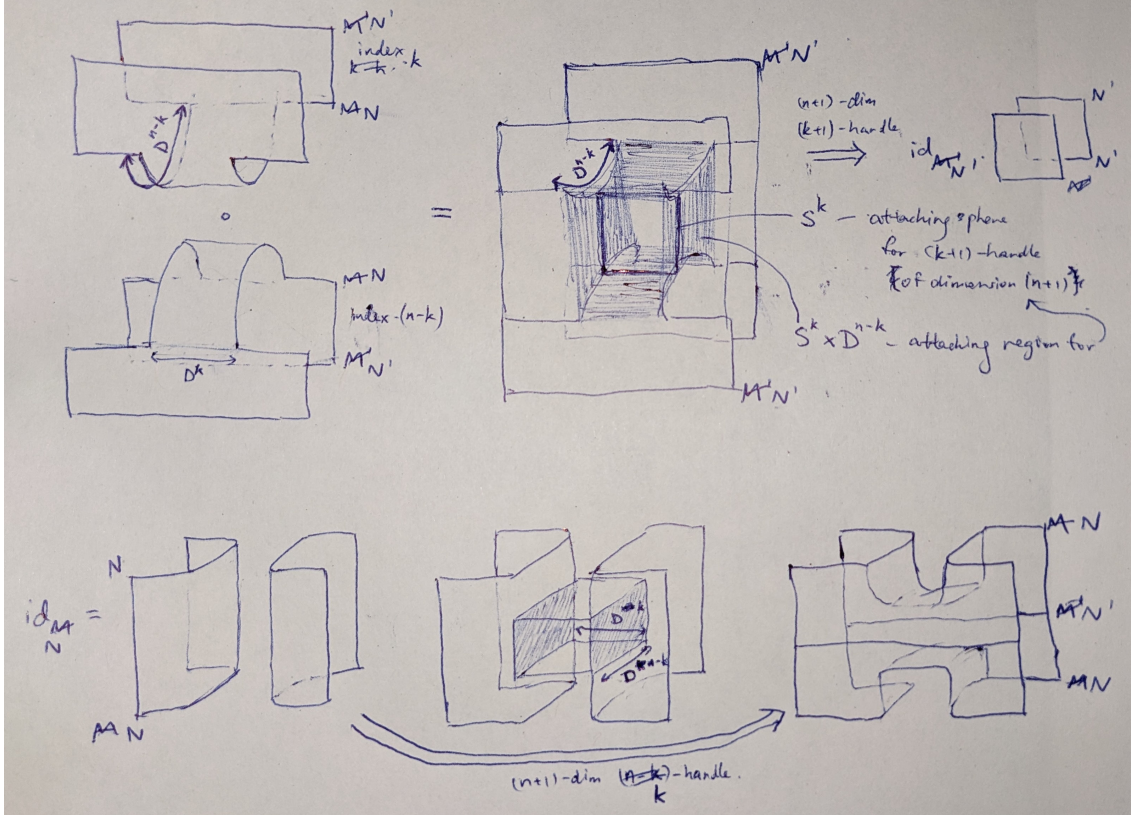 M'N'
index
k-k. k
M N
D^{n-k}
∘
=
M N
index-(n-k)
M'N'
D^k
M'N'
D^{n-k}
M'N'
(n+1)-dim
(k+1)-handle
⟹
id_{M'N'}
N'
N'
S^k — attaching sphere
for (k+1)-handle
{of dimension (n+1)}
S^k × D^{n-k} - attaching region for
N
id_{M N} =
M N
D^k
D^{n-k}
M N
M'N'
M N
(n+1)-dim (n-k)-handle.
k